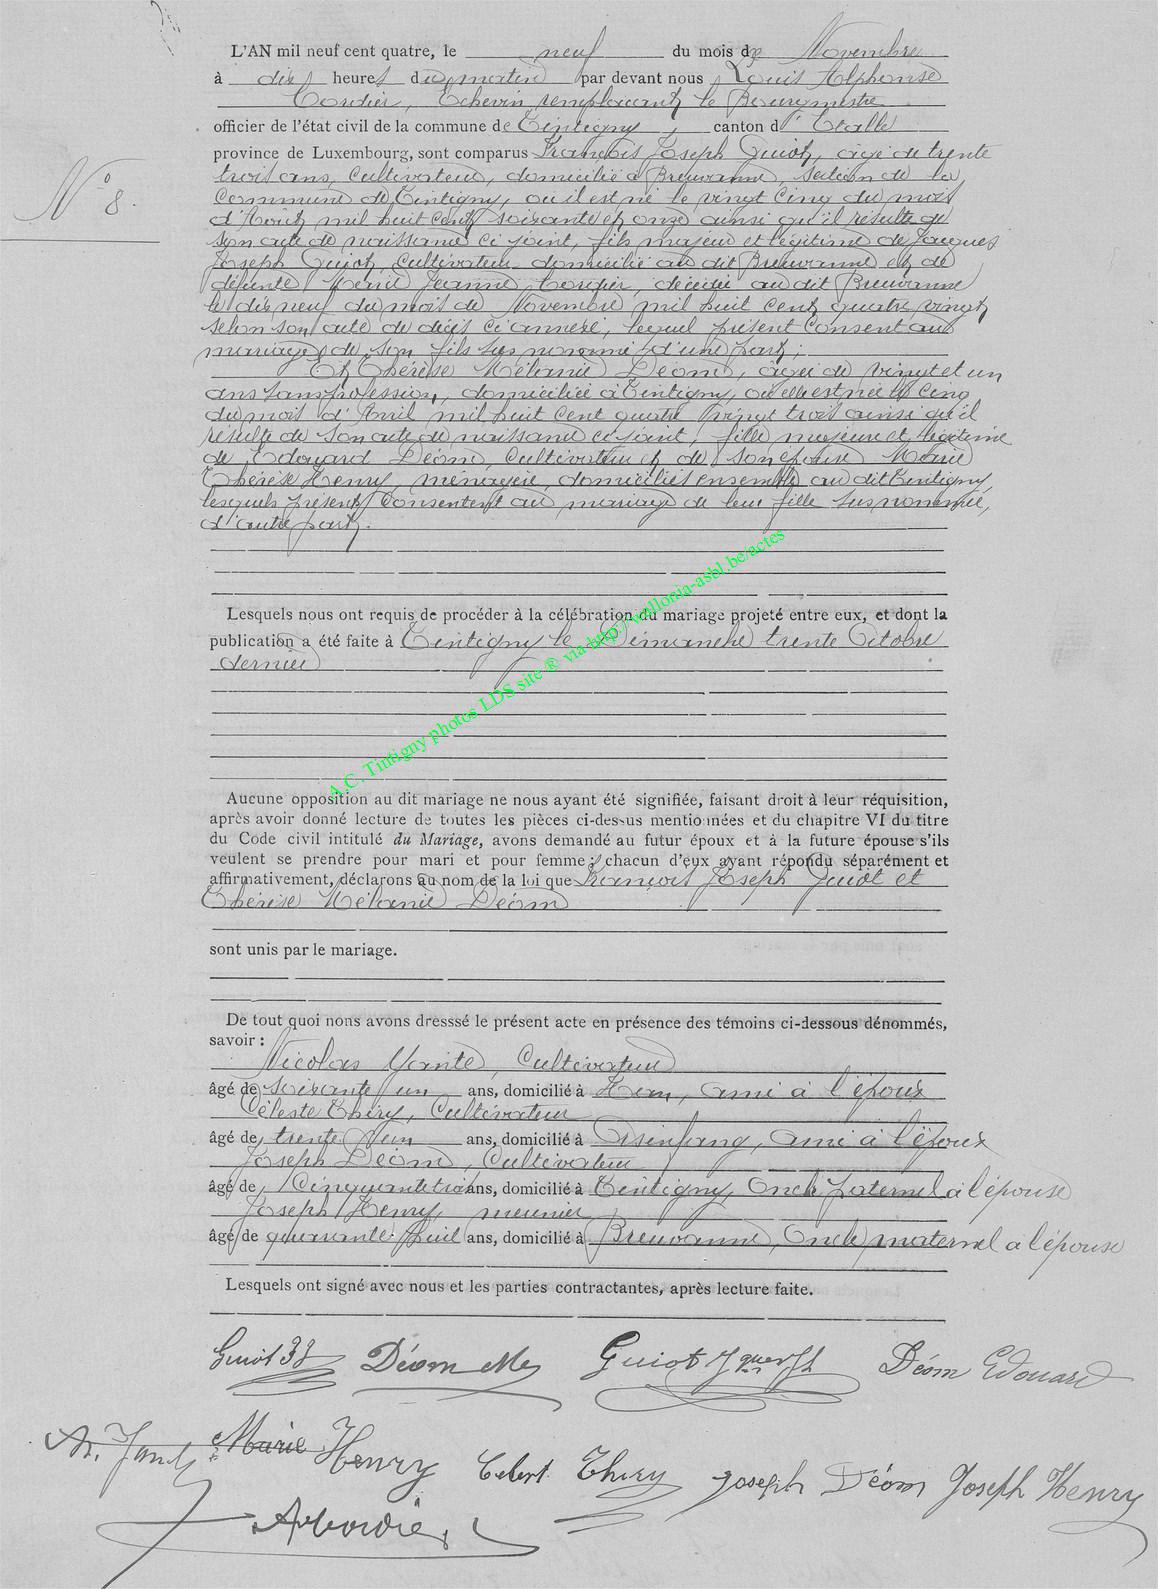 L'AN mil neuf cent quatre, le neuf du mois de Novembre
à dix heures du matin par devant nous Louis Alphonse
Cordier, Echevin remplacant le Bourgmestre
officier de l'état civil de la commune de Tintigny, canton d'Etalle
province de Luxembourg, sont comparus François Joseph Guiot, agé de trente
trois ans, Cultivateur, domicilié à Breuvanne, section de la
Commune de Tintigny, où il est né le vingt cinq du mois
d'Août mil huit cent soixante et onze ainsi qu'il résulte de
son acte de naissance ci joint, fils majeur et légitime de Jacques
Joseph Guiot, Cultivateur domicilié au dit Breuvanne et de
défunte Marie Jeanne Cordier, décédée au dit Breuvanne
le dix neuf du mois de Novembre mil huit cent quatre vingt
selon son acte de décès ci annexé, lequel présent consent au
mariage de son fils sus nommé d'une part;
Et Thérèse Mélanie Déom, agée de vingt et un
ans sans profession, domiciliée à Tintigny, où elle est née le cinq
du mois d'Avril mil huit cent quatre vingt trois ainsi qu'il
résulte de son acte de naissance ci joint, fille majeure et légitime
de Edouard Déom, Cultivateur et de son épouse Marie
Thérèse Henry, ménagère, domiciliés ensemble au dit Tintigny,
lesquels présents consentent au mariage de leur fille sus nommée,
d'autre part.
Lesquels nous ont requis de procéder à la célébration du mariage projeté entre eux, et dont la
publication a été faite à Tintigny le Dimanche trente Octobre
dernier
Aucune opposition au dit mariage ne nous ayant été signifiée, faisant droit à leur réquisition,
après avoir donné lecture de toutes les pièces ci-dessus mentionnées et du chapitre VI du titre
du Code civil intitulé du Mariage, avons demandé au futur époux et à la future épouse s'ils
veulent se prendre pour mari et pour femme; chacun d'eux ayant répondu séparément et
affirmativement, déclarons au nom de la loi que François Joseph Guiot et
Thérèse Mélanie Déom
sont unis par le mariage.
De tout quoi nons avons dresssé le présent acte en présence des témoins ci-dessous dénommés,
savoir :
Nicolas Cultivateur
âgé de soixante un ans, domicilié à Han, ami à l'époux
Céleste Thiry, Cultivateur
âgé de trente ans, domicilié à Ansinfang, ami à l'époux
Joseph Déom, Cultivateur
âgé de Cinquante trois ans, domicilié à Tintigny, Oncle paternel à l'épouse
Joseph Henry, meunier
âgé de quarante huit ans, domicilié à Breuvanne, Oncle maternel à l'épouse
Lesquels ont signé avec nous et les parties contractantes, après lecture faite.
Guiot Déom Guiot Déom Edouard
Marie Henry Thiry Joseph Déom Joseph Henry
Cordier
N° 8.
A.C. Tintigny photos LDS site ® via http://wallonia-asbl.be/actes